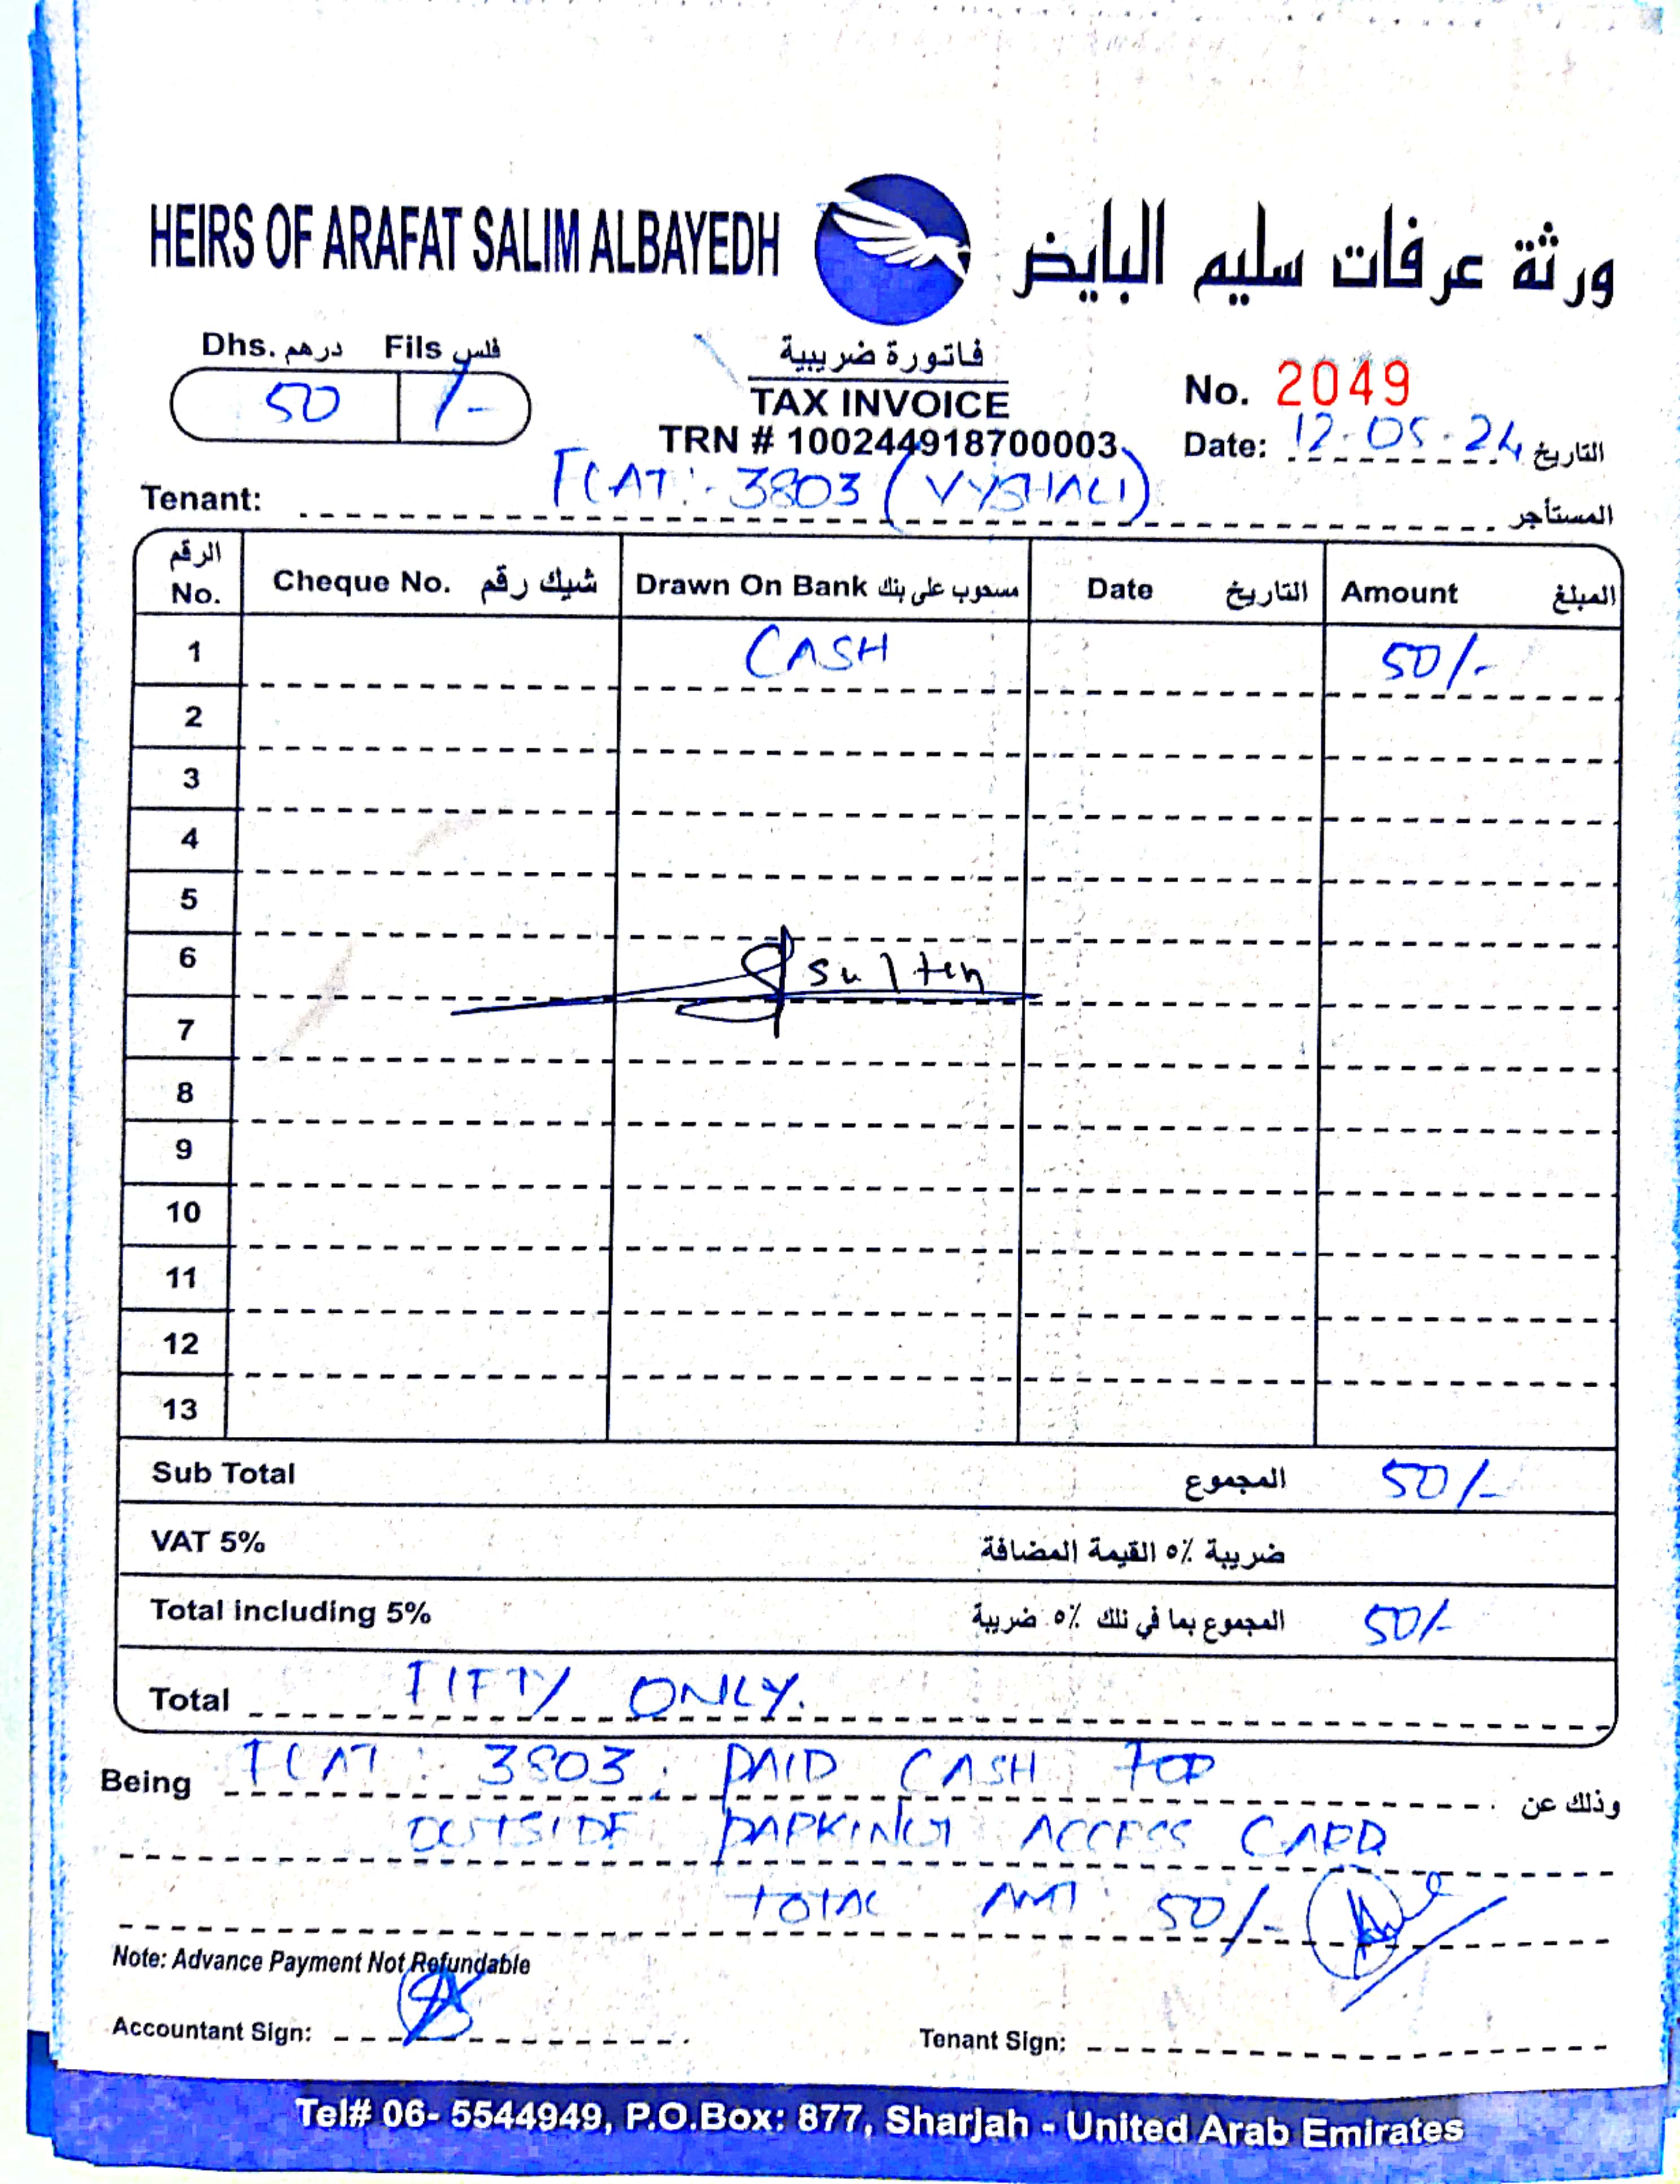 HEIRS OF ARAFAT SALIM ALBAYEDH ورثة عرفات سليم البايض
Dhs. درهم Fils فلس
50 /-
فاتورة ضريبية
TAX INVOICE
TRN # 100244918700003
No. 2049
Date: 12.05.24 التاريخ
Tenant: FLAT :- 3803 (VYSHALI) المستأجر
الرقم No. Cheque No. شيك رقم Drawn On Bank مسحوب على بنك Date التاريخ Amount المبلغ
1 CASH 50/-
2
3
4
5
6 sulten
7
8
9
10
11
12
13
Sub Total المجموع 50/-
VAT 5% ضريبة ٥٪ القيمة المضافة
Total including 5% المجموع بما في ذلك ٥٪ ضريبة 50/-
Total FIFTY ONLY.
Being FLAT : 3803 ; PAID CASH FOR وذلك عن
OUTSIDE PARKING ACCESS CARD
TOTAL AMT : 50/-
Note: Advance Payment Not Refundable
Accountant Sign: Tenant Sign:
Tel# 06- 5544949, P.O.Box: 877, Sharjah - United Arab Emirates